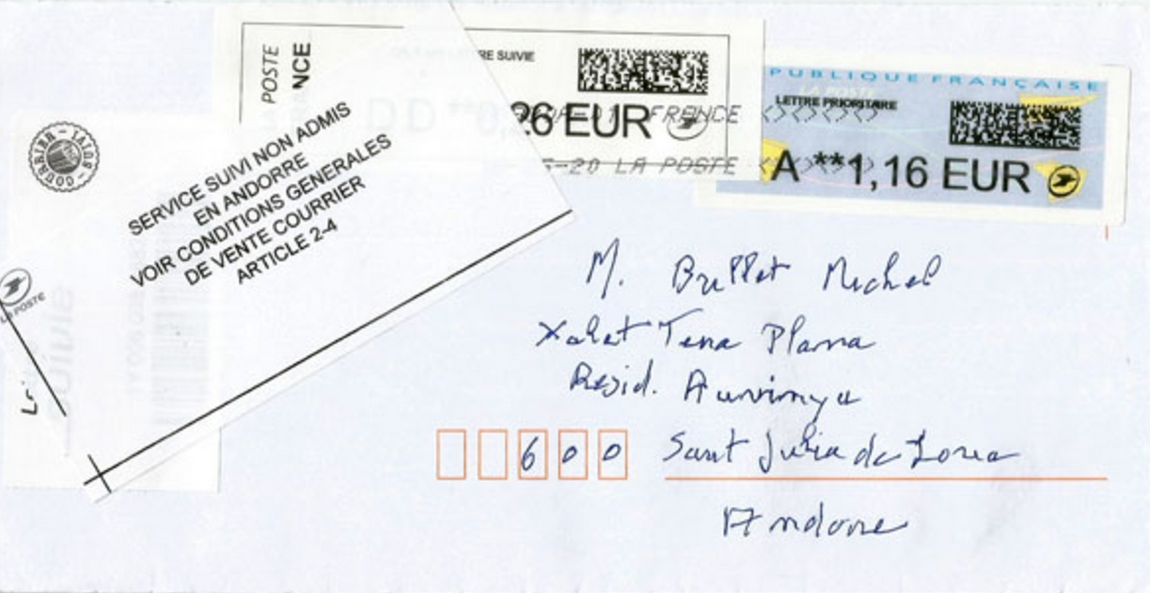 LA POSTE
NCE
RE SUIVIE
26 EUR
PUBLIQUE FRANÇAISE
LA POSTE
LETTRE PRIORITAIRE
A **1,16 EUR
FRANCE
-20 LA POSTE
COURRIER
LA POSTE
SERVICE SUIVI NON ADMIS
EN ANDORRE
VOIR CONDITIONS GENERALES
DE VENTE COURRIER
ARTICLE 2-4
M. Brullet Michel
Xalet Terra Plana
Resid. Aunvinya
600 Sant Julia de Loria
Andorre